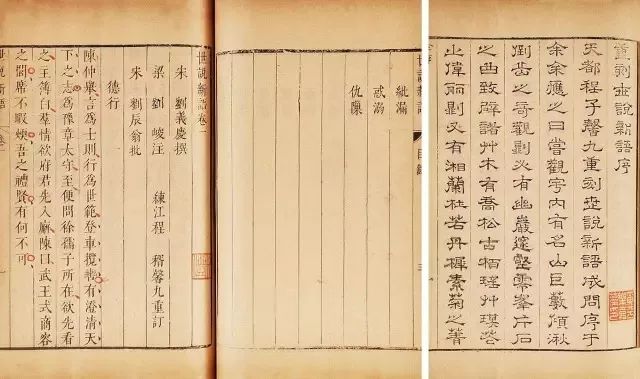 重刻世說新語序
天都程子馨九重刻世說新語成問序于
余余應之曰嘗觀宇內有名山巨藪傾湫
倒之奇觀則又有幽巖邃壑零峯片石
之曲致辟諸艸木有喬松古栢瑤艸琪
之偉麗則又有湘蘭杜若丹樨素菊之菁
紕漏
惑溺
仇隟
世說新語 目錄
世說新語卷一
宋 劉義慶撰
梁 劉峻注 練江程 稺馨九重訂
宋 劉辰翁批
德行
陳仲舉言為士則行為世範登車攬轡有澄清天
下之志為豫章太守至便問徐孺子所在欲先看
之主簿白羣情欲府君先入廨陳曰武王式商容
之閭席不暇煖吾之禮賢有何不可
世說新語 卷一